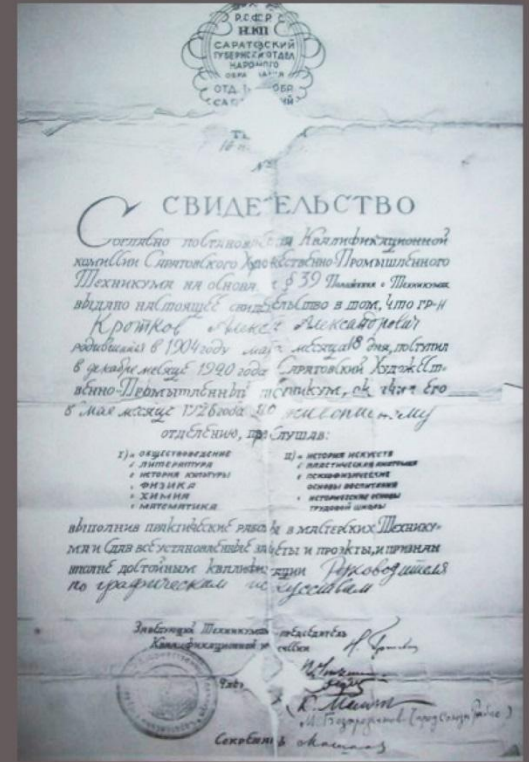 Р.С.Ф.С.Р.
НКП
САРАТОВСКИЙ
ГУБЕРНСКИЙ ОТДЕЛ
НАРОДНОГО
СВИДЕТЕЛЬСТВО
Согласно постановления Квалификационной
комиссии Саратовского Художественно-Промышленного
Техникума на основа § 39 Положения о Техникумах
выдано настоящее свидетельство в том, что гр-н
Кротков Алекс Александрович
родившийся в 1904 году мая месяца 18 дня, поступил
в декабре месяце 1920 года Саратовский Художест-
венно-Промышленный техникум, окончил его
в мае месяце 1926 года по живописному
отделению, прослушав:
I) " ОБЩЕСТВОВЕДЕНИЕ
" ЛИТЕРАТУРА
" ИСТОРИЯ КУЛЬТУРЫ
" ФИЗИКА
" ХИМИЯ
" МАТЕМАТИКА
II) " ИСТОРИЯ ИСКУССТВ
" ПЛАСТИЧЕСКАЯ АНАТОМИЯ
" ПСИХОФИЗИЧЕСКИЕ
ОСНОВЫ ВОСПИТАНИЯ
" ИСТОРИЧЕСКИЕ ОСНОВЫ
ТРУДОВОЙ ШКОЛЫ
выполнив практические работы в мастерских Технику-
ма и сдав все установленные зачеты и проэкты, и признан
вполне достойным квалификации Руководителя
по графическим искусствам
Заведующий Техникумом председатель
Квалификационной комиссии
Секретарь